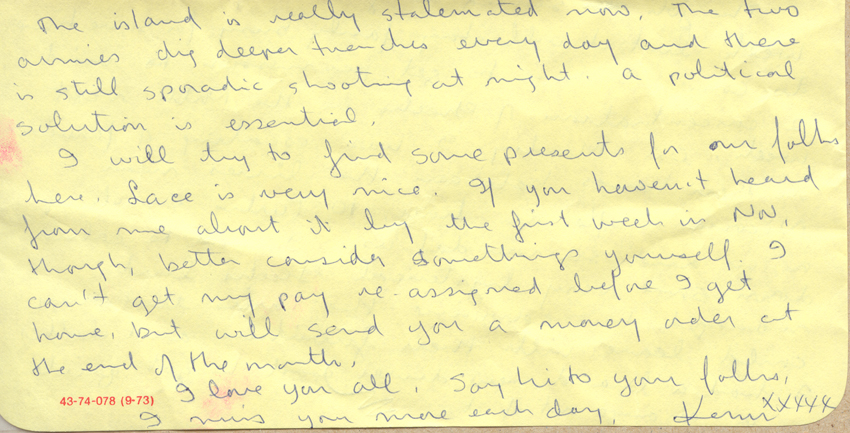 The island is really stalemated now. The two
armies dig deeper trenches every day and there
is still sporadic shooting at night. A political
solution is essential.
I will try to find some presents for our folks
here. Lace is very nice. If you haven't heard
from me about it by the first week in Nov,
though, better consider somethings yourself. I
can't get my pay re-assigned before I get
home, but will send you a money order at
the end of the month.
I love you all. Say hi to your folks,
43-74-078 (9-73)
I miss you more each day, XXXXX